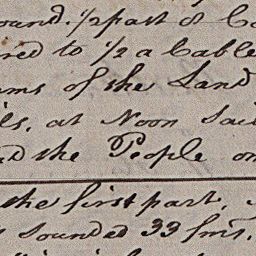 ound. ½ past 8
red to ½ a Cable
of the Land
at Noon
the People on
the first part,
sounded 33 fms.